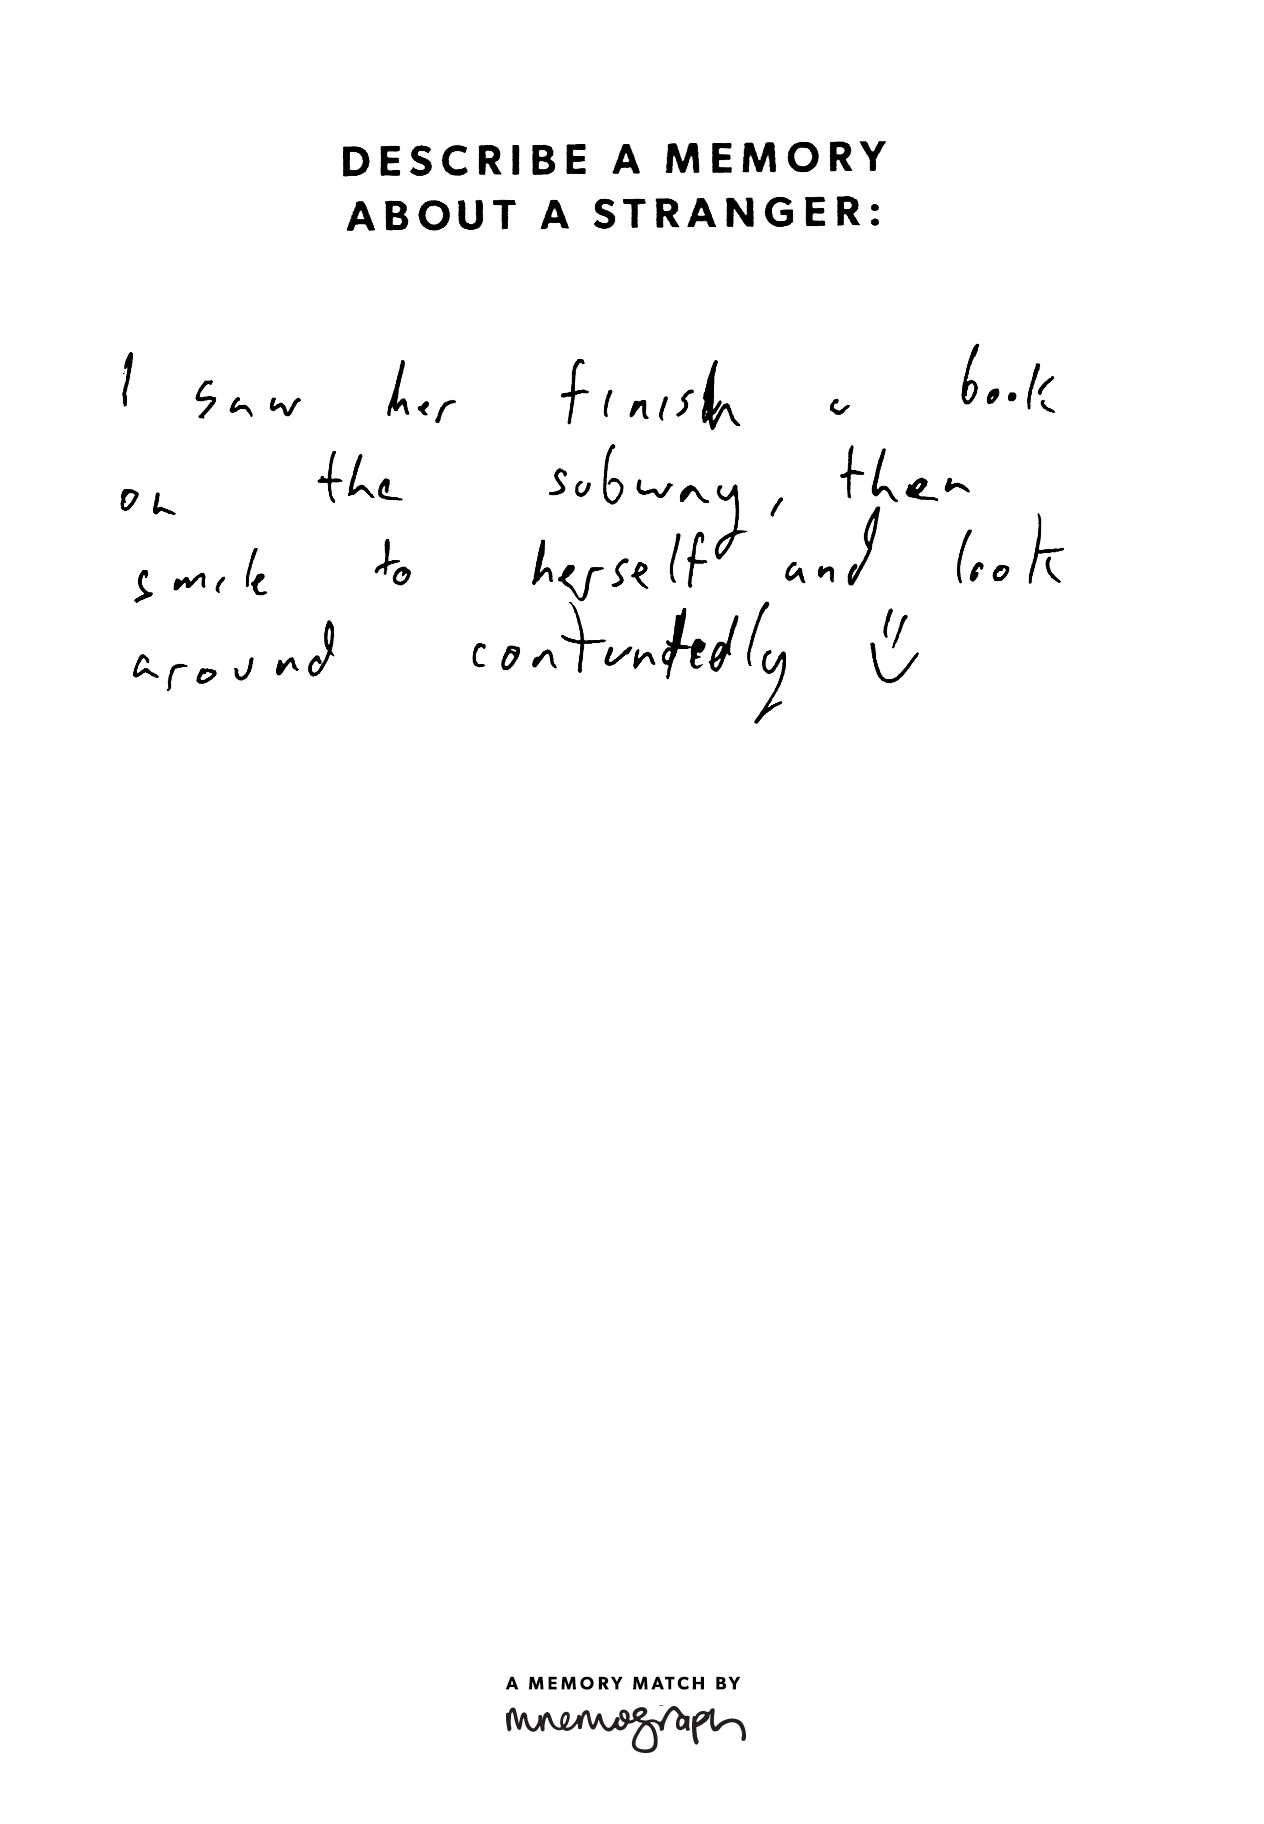 DESCRIBE A MEMORY
ABOUT A STRANGER:
I saw her finish a book
on the subway, then
smile to herself and look
around contuntedly
A MEMORY MATCH BY
mnemograph